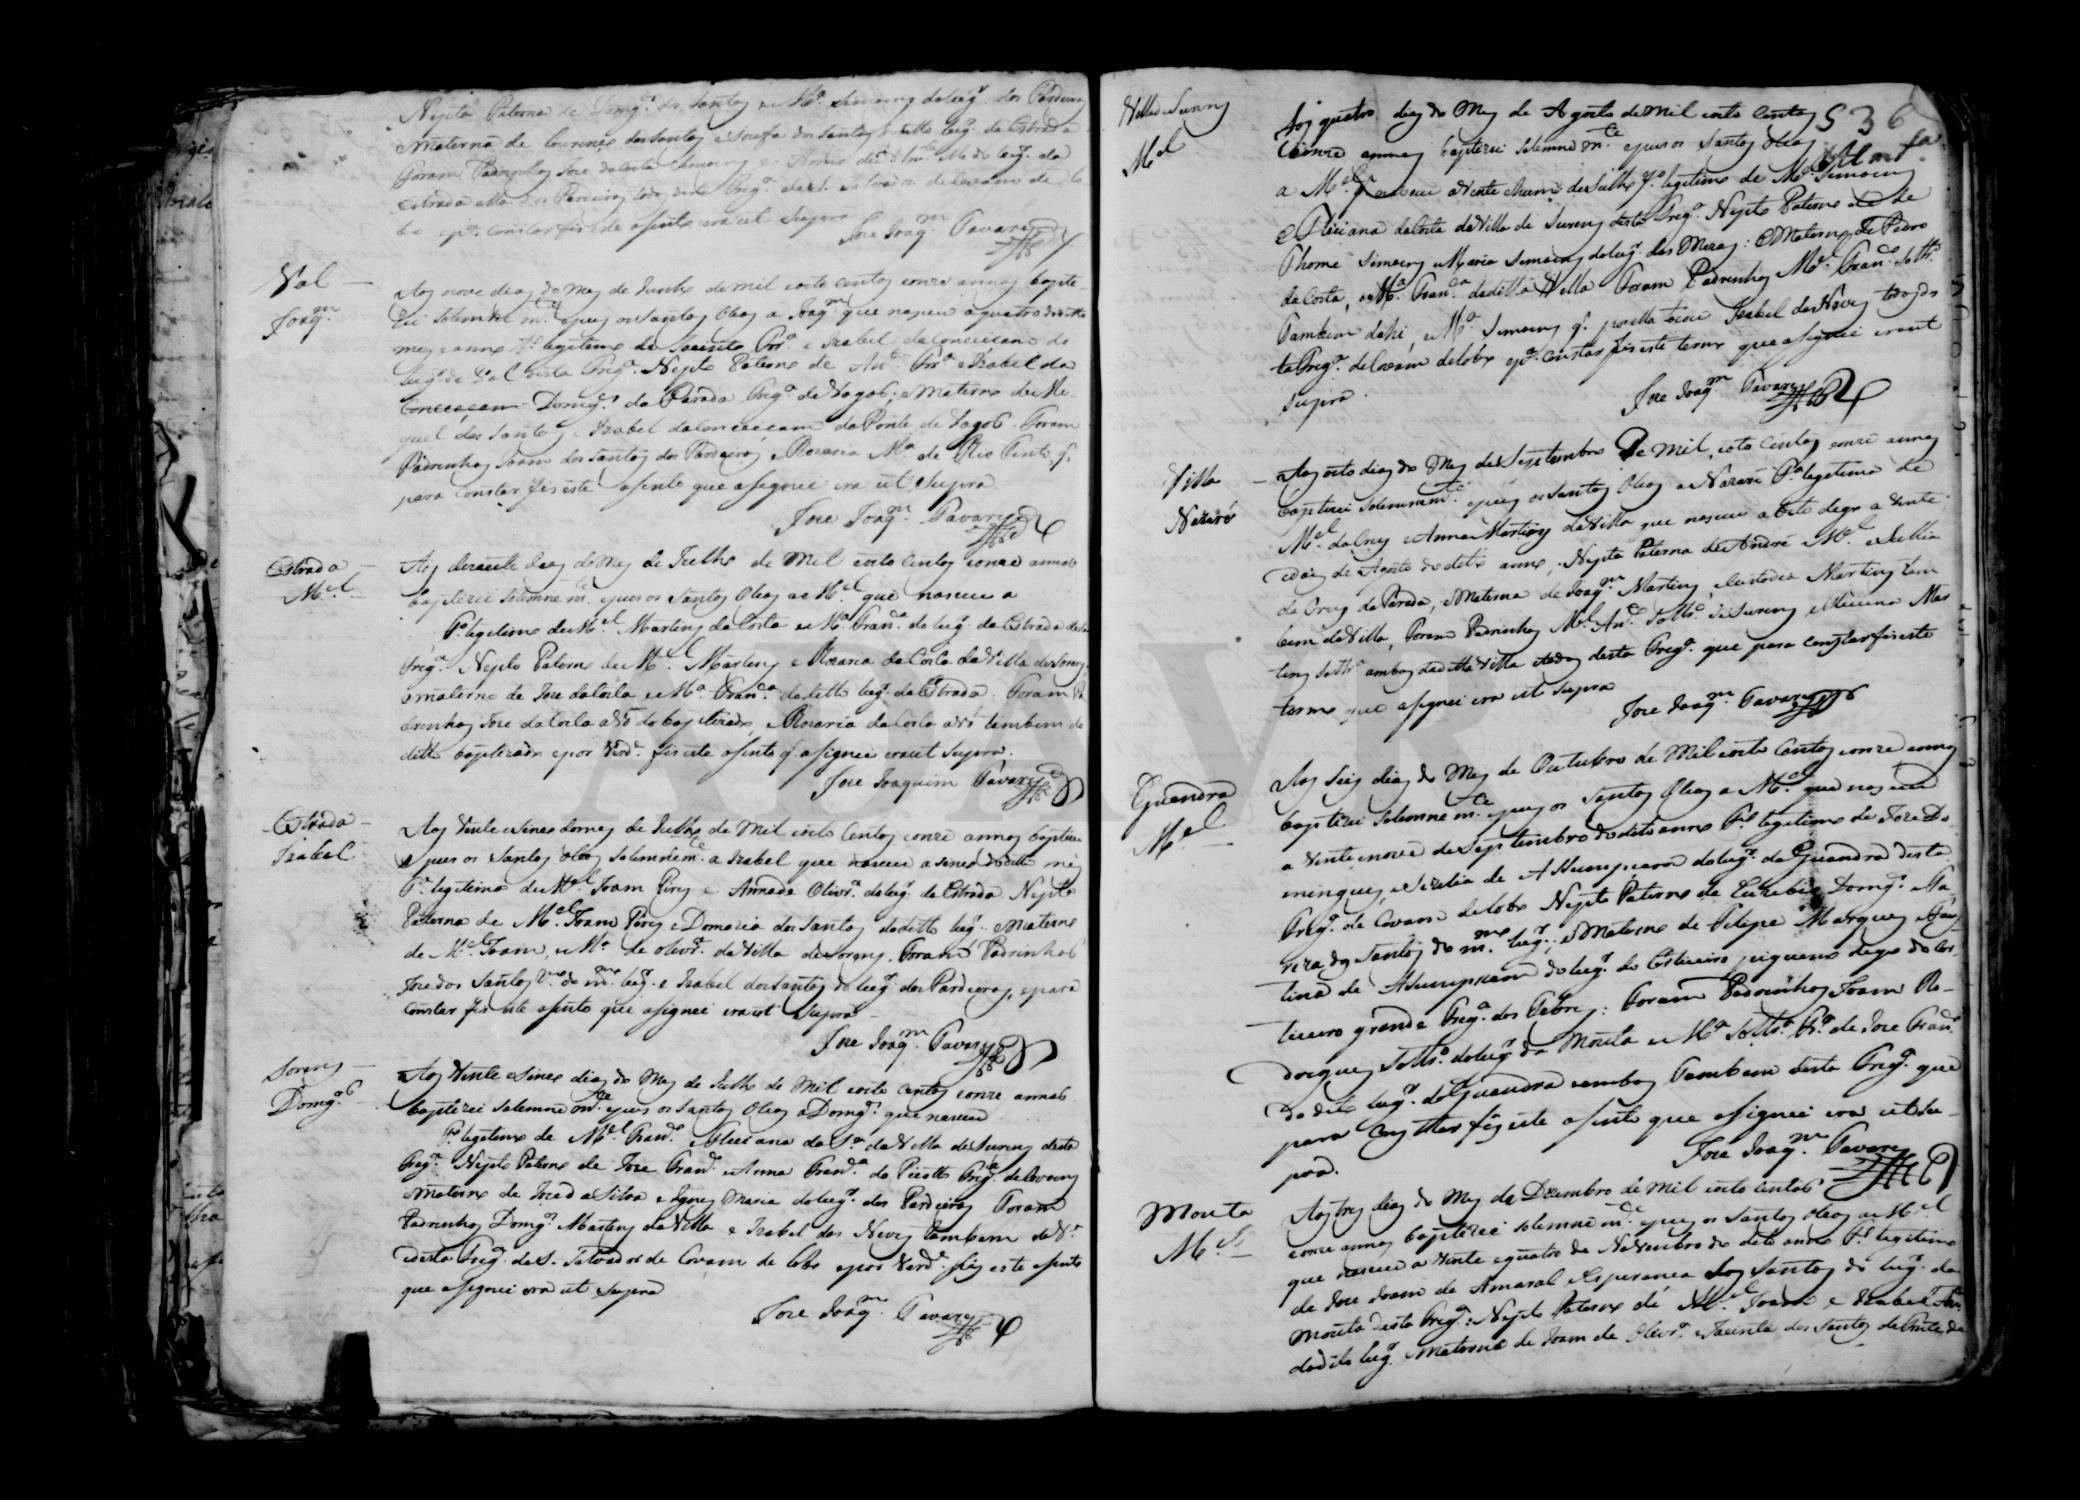 Neyta Paterna de Domg.os dos Santos e M.a Simoens do lug.r dos Pardieiros
e Materna de dos Santos e Josefa dos Santos do ditto lug.r da Estrada
foram Padrinhos Jose da Costa
Estrada
constar fis este asento era ut supra
Jose Joaq.m Tavares
Val
Joaq.m
Aos nove dias do Mes de Junho de mil oito centos e onze annos bapti-
zei solemnem.te e pus os Santos Oleos a Joaq.m que nasceu a quatro do ditto
mes e anno f.o legitimo de Jacinto e Izabel da Conceicam do
lug.r do Val desta Freg.a Neyto Paterno de An.to e Izabel da
Conceiçam Domg.s da Parada Freg.a de Vagos; e Materno de Mi-
guel dos Santos e Izabel da Conceicam da Ponte de Vagos. Foram
Padrinhos Joam dos Santos dos Pardieiros e Rozaria M.a de Rio Tinto q.
para constar fis este asento que asignei era ut supra
Jose Joaq.m Tavares
Estrada
M.el
Aos dezasete dias do Mes de Julho de Mil oito centos e onze annos
baptizei solemnem.te e pus os Santos Oleos a M.el que nasceu a
F.o legitimo de M.el Martins da Costa e M.a Fran.ca do lug.r da Estrada desta
Freg.a Neyto Paterno de M.el Martins e Rozaria da Costa da Villa de Sorens,
e materno de Jose da Costa e M.a Fran.ca do ditto lug.r da Estrada. Foram Pa-
drinhos Jose da Costa avô do baptizado, e Rozaria da Costa avó tambem do
ditto baptizado e por verd.e fis este asento q. asignei era ut supra.
Jose Joaquim Tavares
Estrada
Izabel
Aos vinte e sinco do mes de Julho de Mil oito centos e onze annos baptizei
e pus os Santos Oleos solemnem.te a Izabel que nasceu a sinco do ditto mes
F.a legitima de M.el Joam Pires e Anna de Olivr.a do lug.r da Estrada Neyta
Paterna de M.el Joam Pires e Domazia dos Santos do ditto lug.r e Materna
de M.el Joam e M.a de Olivr.a da Villa de Sorens. Foram Padrinhos
Jose dos Santos do m.mo lug.r e Izabel dos Santos do lug.r dos Pardieiros, e para
constar fis este asento que asignei era ut supra
Jose Joaq.m Tavares
Sorens
Domg.os
Aos vinte e sinco dias do Mes de Julho de Mil oito centos e onze annos
baptizei solemnem.te e pus os Santos Oleos a Domg.os que nasceu
F.o legitimo de M.el Fran.co e Luciana da S.a da Villa de Sorens desta
Freg.a Neyto Paterno de Jose Fran.co e Anna Fran.ca do Picotto Freg.a de Covam
e Materno de Jose da Silva e Ignes Maria do lug.r dos Pardieiros Foram
Padrinhos Domg.os Martins da Villa e Izabel das Neves tambem da V.a
e desta Freg.a de S. Salvador de Covam de Lobo e por verd.e fis este asento
que asignei era ut supra
Jose Joaq.m Tavares
536
Villa de Sorens
M.el
Aos quatro dias do Mes de Agosto de Mil oito centos
e onze annos baptizei solemnem.te e pus os Santos Oleos
a M.el q. nasceu a vinte e hum de Julho f.o legitimo de M.el Simoens
e Feliciana da Costa da Villa de Sorens desta Freg.a Neyto Paterno de
Thome Simoens e Maria Simoens do lug.r das Mezas: e Materno de Pedro
da Costa, e M.a Fran.ca da ditta Villa Foram Padrinhos M.el Fran.co Soltr.o
tambem dahi, e M.a Simoens q. por ella tocou Izabel das Neves todos des-
ta Freg.a de Covam de Lobo e p.a constar fis este termo que asignei era ut
supra.
Jose Joaq.m Tavares
Villa
Nazaré
Aos oito dias do Mes de Septembro de Mil oito centos e onze annos
baptizei solemnem.te e pus os Santos Oleos a Nazaré F.a legitima de
M.el da Crus e Anna Martins da Villa que nasceu a vinte
e dois de Agosto do dito anno, Neyta Paterna de André M.el e Julia
da Crus da Parada, e Materna de Joaq.m Martins e Custodia Martins tam-
bem da Villa, Foram Padrinhos M.el An.to Soltr.o de Sorens e Luciana Mar-
tins Soltr.a ambos da ditta Villa e todos desta Freg.a que para constar fis este
termo que asignei era ut supra
Jose Joaq.m Tavares
Gandra
M.el
Aos seis dias do Mes de Outubro de Mil oito centos e onze annos
baptizei solemnem.te e pus os Santos Oleos a M.el que nasceu
a vinte e nove de Septembro do dito anno F.o legitimo de Jose Do-
mingues, e Luzia de Assumpcam do lug.r da Gandra desta
Freg.a de Covam de Lobo Neyto Paterno de Euzebio Domg.s e Na-
reza dos Santos do m.mo lug.r, e Materno de Felipe Marques e Faus-
tina de Assumpcam do lug.r do Corticeiro piqueno digo do Cor-
ticeiro grande Freg.a dos Febres: Foram Padrinhos Joam Ro-
drigues Soltr.o do lug.r da Mouta e M.a Soltr.a F.a de Jose Fran.co
do dito lug.r da Gandra e ambos tambem desta Freg.a que
para constar fis este asento que asignei era ut su-
pra.
Jose Joaq.m Tavares
Mouta
M.el
Aos tres dias do Mes de Dezembro de Mil oito centos
e onze annos baptizei solemnem.te e pus os Santos Oleos a M.el
que nasceu a vinte e quatro de Novembro do dito anno F.o legitimo
de Jose Joam de Amaral e Esperanca dos Santos do lug.r da
Mouta desta Freg.a: Neyto Paterno de M.el Joam e Izabel
do dito lug.r e Materno de Joam de Olivr.a e Jacinta dos Santos da Ponte de